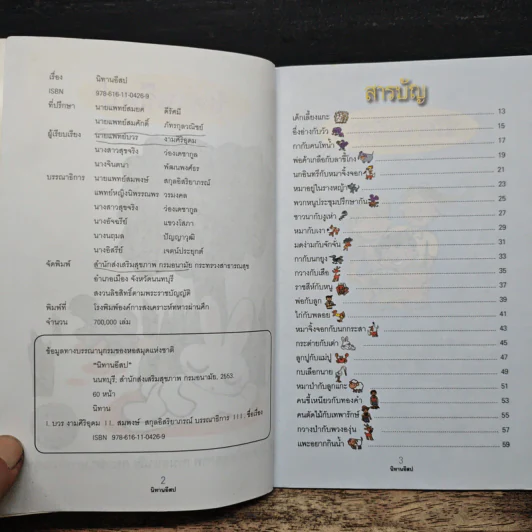 เรื่อง นิทานอีสป
ISBN 978-616-11-0426-9
ที่ปรึกษา นายแพทย์สมยศ ดีรัศมี
นายแพทย์สมศักดิ์ ภัทรกุลวณิชย์
ผู้เรียบเรียง นายแพทย์บวร งามศิริอุดม
นางสาวสุขจริง ว่องเดชากูล
นางจินตนา พัฒนพงศ์ธร
บรรณาธิการ นายแพทย์สมพงษ์ สกุลอิสริยาภรณ์
แพทย์หญิงนิพรรณพร วรมงคล
นางสาวสุขจริง ว่องเดชากูล
นางอัจฉรีย์ แขวงโสภา
นางนฤมล ปัญญาวุฒิ
นางอิสรีย์ เจตน์ประยุกต์
จัดพิมพ์ สำนักส่งเสริมสุขภาพ กรมอนามัย กระทรวงสาธารณสุข
อำเภอเมือง จังหวัดนนทบุรี
สงวนลิขสิทธิ์ตามพระราชบัญญัติ
พิมพ์ที่ โรงพิมพ์องค์การสงเคราะห์ทหารผ่านศึก
จำนวน 700,000 เล่ม
ข้อมูลทางบรรณานุกรมของหอสมุดแห่งชาติ
"นิทานอีสป"
นนทบุรี: สำนักส่งเสริมสุขภาพ กรมอนามัย, 2553
60 หน้า
นิทาน
I. บวร งามศิริอุดม II. สมพงษ์ สกุลอิสริยาภรณ์ บรรณาธิการ III. ชื่อเรื่อง
ISBN 978-616-11-0426-9
2
นิทานอีสป
สารบัญ
เด็กเลี้ยงแกะ 13
อึ่งอ่างกับวัว 15
กากับคนโทน้ำ 17
พ่อค้าเกลือกับลาขี้โกง 19
นกอินทรีกับหมาจิ้งจอก 21
หมาอยู่ในรางหญ้า 23
พวกหนูประชุมปรึกษากัน 25
ชาวนากับงูเห่า 27
หมากับเงา 29
มดง่ามกับจักจั่น 31
กากับนกยูง 33
กวางกับเสือ 35
ราชสีห์กับหนู 37
พ่อกับลูก 39
ไก่กับพลอย 41
หมาจิ้งจอกกับนกกระสา 43
กระต่ายกับเต่า 45
ลูกปูกับแม่ปู 47
กบเลือกนาย 49
หมาป่ากับลูกแกะ 51
คนขี้เหนียวกับทองคำ 53
คนตัดไม้กับเทพารักษ์ 55
กวางป่ากับพวงองุ่น 57
แพะอยากกินน้ำ 59
3
นิทานอีสป